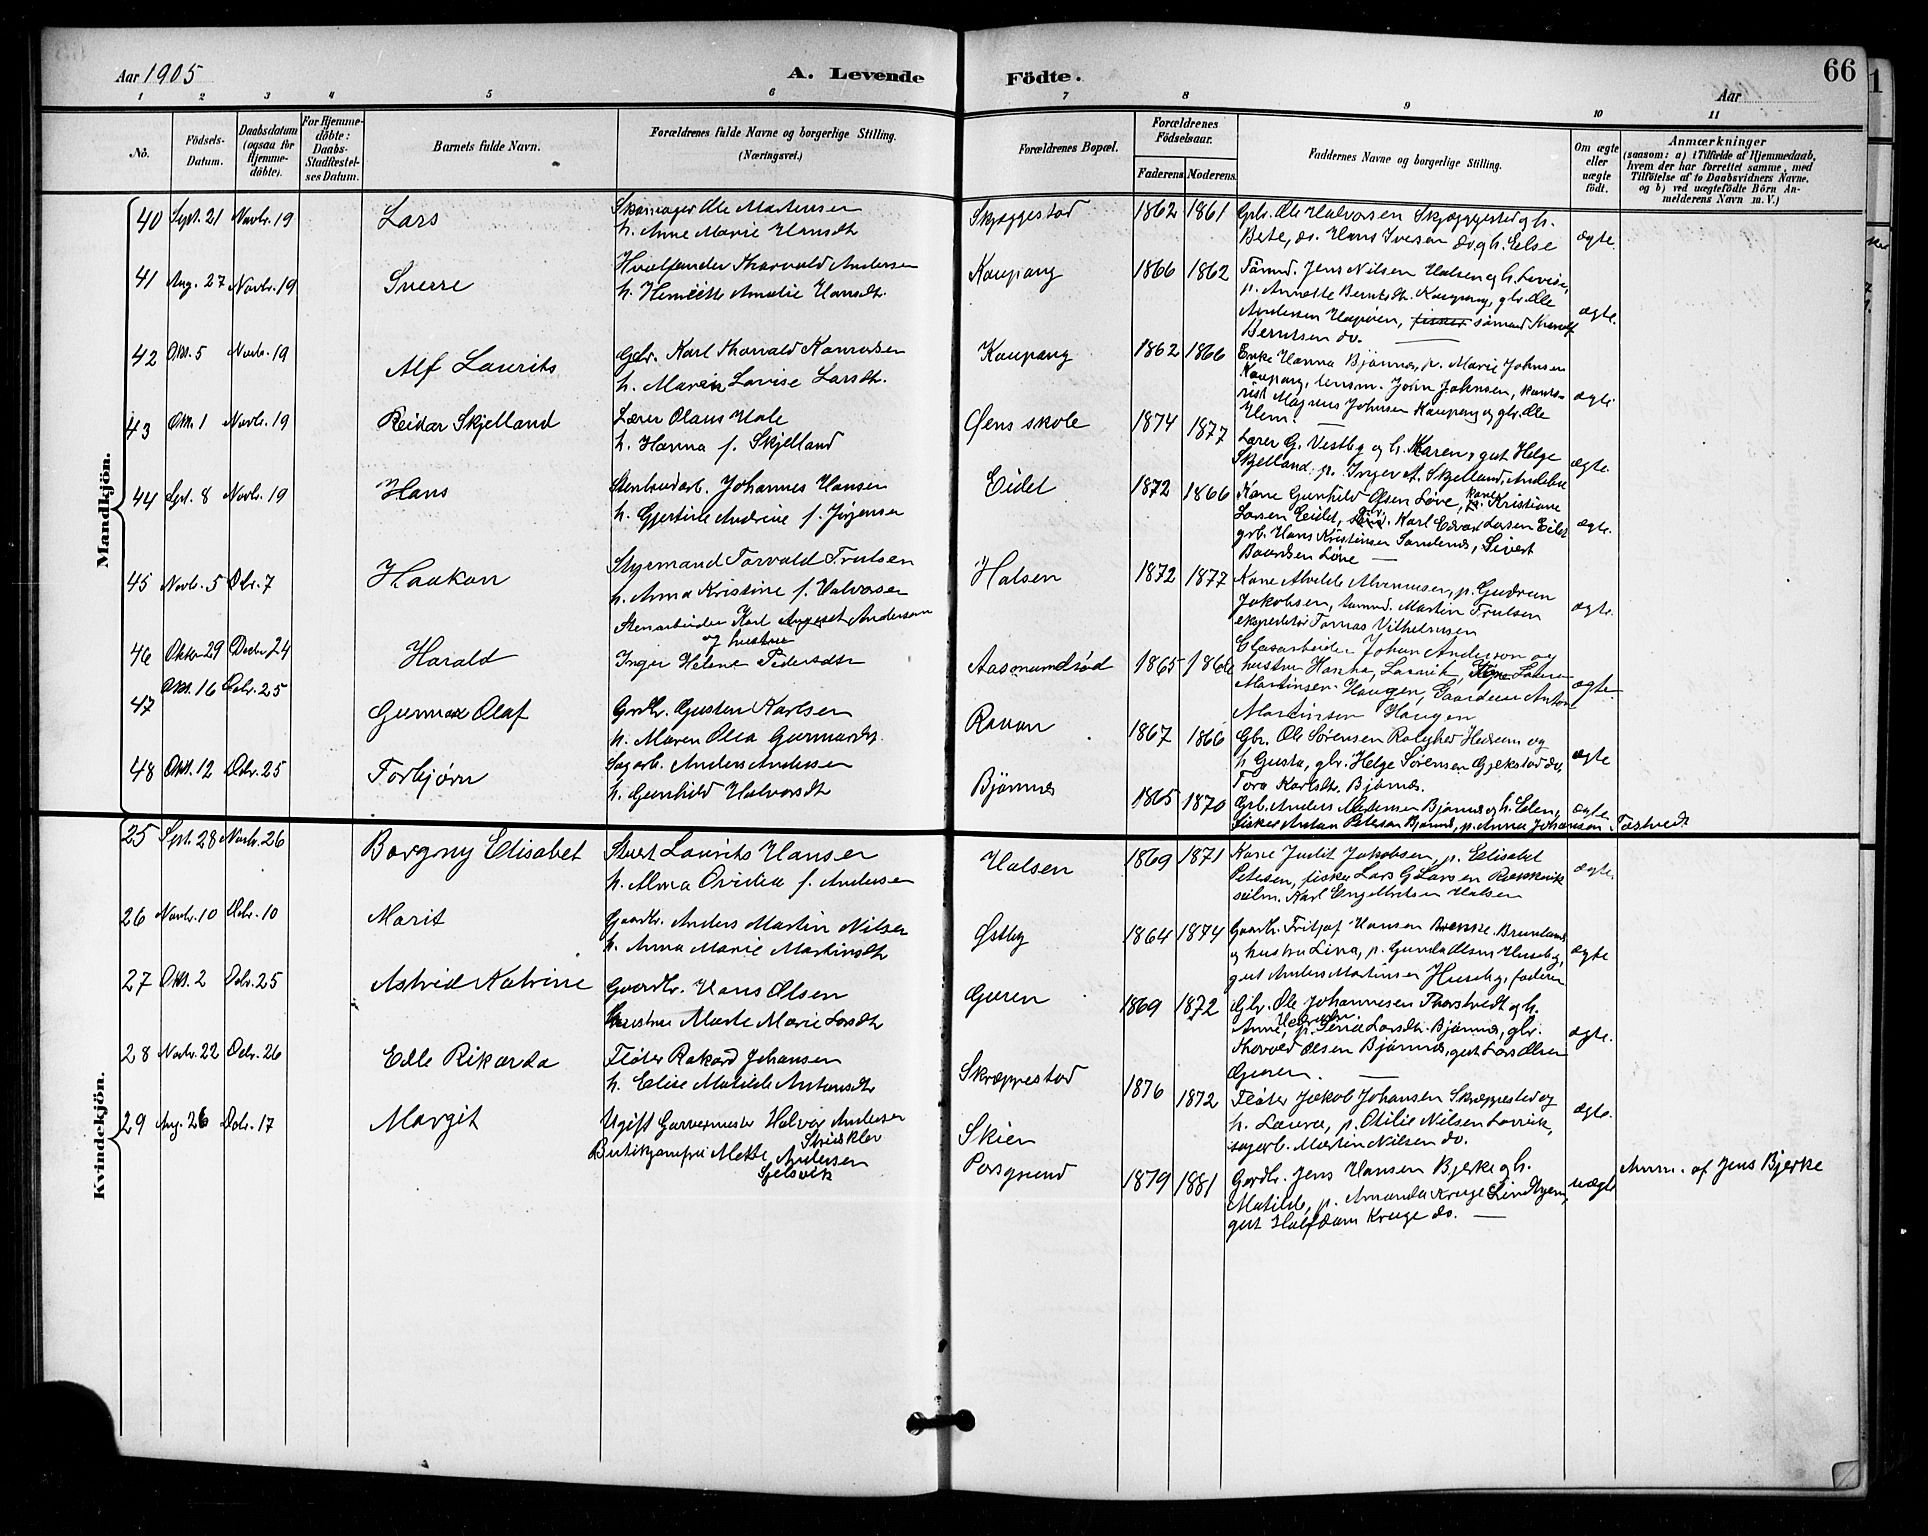 Aar 1905
A. Levende Födte.
66
Aar
1 2 3 4 5 6 7 8 9 10 11
No.
Födsels-Datum.
Daabsdatum (ogsaa for Hjemme-döbte).
For Hjemme-döbte: Daabs-Stadfæstel-ses Datum.
Barnets fulde Navn.
Forældrenes fulde Navne og borgerlige Stilling. (Næringsvei.)
Forældrenes Bopæl.
Forældrenes Födselsaar.
Faderens Moderens.
Faddernes Navne og borgerlige Stilling.
Om ægte eller uægte födt.
Anmærkninger
(saasom: a) i Tilfælde af Hjemmedaab, hvem der har forrettet samme, med Tilföielse af to Daabsvidners Navne, og b) ved uægtefödte Börn An-melderens Navn m. V.)
Mandkjön.
40 Sept. 21 Novbr. 19 Lars
Skomager Ole Martinsen
h. Anne Marie Hansdtr
Skjæggestad 1862 1861
Grb. Ole Halvorsen Skjæggestad g h.
Bete, do. Hans Iversen do. g h. Else ægte
41 Aug. 27 Novbr. 19 Sverre
Hvalfanger Thorvald Andersen
h. Henriette Amalie Hansdtr.
Kaupang 1866 1862
Tömd. Jens Nilsen Halsen g h. Lovise,
p. Annette Berntsdtr. Kaupang, gbr. Ole
Andersen fisker sömand
Berntsen do. ægte.
42 Okt. 5 Novbr. 19 Alf Laurits
Gbr. Karl Thorvald Konradsen
h. Maren Lovise Larsdtr.
Kaupang 1862 1866
Enke Hanna Bjönnes, p. Marie Johnsen
Kaupang, lensm. John Johnsen, konto-
rist Magnus Johnsen Kaupang og gbr. Ole
Hem. ægte
43 Okt. 1 Novbr. 19 Reidar Skjelland
Lærer Olaus Hale
h. Hanna f. Skjelland
Øens skole 1874 1877
Lærer G. Vestby og h. Karen, gut Helge
Skjelland, p. Inger A. Skjelland, Andebu ægte.
44 Spt. 8 Novbr. 19 Hans
Stenhudarb. Johannes Hansen
h. Gjertine Andrine f. Jörgensen
Eidet 1872 1866
Kone Gunhild Olsen Løve, kone Kristiane
Larsen Eidet, Karl Edvard Larsen Eidet
grb. Hans Kristiansen Sandenes, Sivert
Baardsen Løve ægte.
45 Novbr. 5 Dcbr. 7 Haakon
Styrmand Torvald Trulsen
h. Anna Kristine f. Halvorsen
Halsen 1872 1877
Kone Alvilde Alvensen, p. Gudrun
Jakobsen, tømmd. Martin Trulsen
ekspeditör Tomas Vilhelmsen ægte.
46 Oktbr 29 Decbr 24 Harald
Stenarbeider Karl August Anderson
og hustru
Inger Helene Pedersdtr
Aasmundrød 1865 1866
Glasarbeider Johan Anderson og
hustru Hansha, Larvik, Laura
Martinsen Haugen, Gaardeier Anton
Martinsen Haugen ægte
47 Okt. 16 Dcbr. 25 Gunnar Olaf
Grdbr. Gustav Karlsen
h. Maren Olea Gunnarsdtr.
Ravan 1867 1866
Gbr. Ole Sörensen Hedrum og
h Gusta, gbr. Helge Sörensen Gjekstad do,
Tora Karlsdtr. Bjönnes. ægte
48 Okt. 12 Dcbr. 25 Torbjørn
Sagarb. Anders Andersen
h. Gunhild Halvorsdtr
Bjönnes 1865 1870
Grb. Anders Pedersen Bjönnes og h. Elen,
fisker Anton Petersen Bjönnes, p. Anna Johansen Tostvedt
ægte
Kvindekjön.
25 Sept. 28 Novbr. 26 Borgny Elisabet
Stuert Laurits Hansen
h. Alma Ovidia f. Andersen
Halsen 1869 1871
Kone Judit Jakobsen, p. Elisabet
Petersen, fisker Lars G Larsen Rækkevik
seilm. Karl Engelbretsen Halsen ægte.
26 Novbr. 10 Dcbr. 10 Marit
Gaardbr. Anders Martin Nilsen
h. Anna Marie Martinsdtr
Østby 1864 1874
Gaardbr. Fritjof Hansen Brekke, Brunlanes
og hustru Lina, p. Gunda Olsen Huseby,
gut Anders Martinsen Huseby, faderen ægte
27 Okt. 2 Dcbr. 25 Astrid Katrine
Gaardbr. Hans Olsen
hustru Marte Marie Larsdtr
Guren 1869 1872
Gbr. Ole Johannesen Thorstvedt og h.
Anne, Hedrum, p. Lina Larsdtr. Bjönnes, gbr.
Thorvald Olsen Bjönnes, gut Lars Olsen
Guren. ægte.
28 Novbr. 22 Dcbr. 26 Edle Rikarda
Fløter Rikard Johansen
h. Elise Matilde Antonsdtr
Skræppestad 1876 1872
Fløter Jakob Johansen Skræppestad og
h. Laura, p. Otilie Nilsen Larvik,
sagarb. Martin Nilsen do. ægte.
29 Aug. 26 Dcbr. 17 Margit
Ugift Garvermester Halvor Andersen
Stridsklev
Butikjomfru Mette Andersen
Sjelsvik
Skien
Porsgrund 1879 1881
Gardbr. Jens Hansen Bjerke g h.
Matilde, p. Amanda Kruge Lindhjem,
gut Halfdan Kruge do. uægte
Anm. af Jens Bjerke